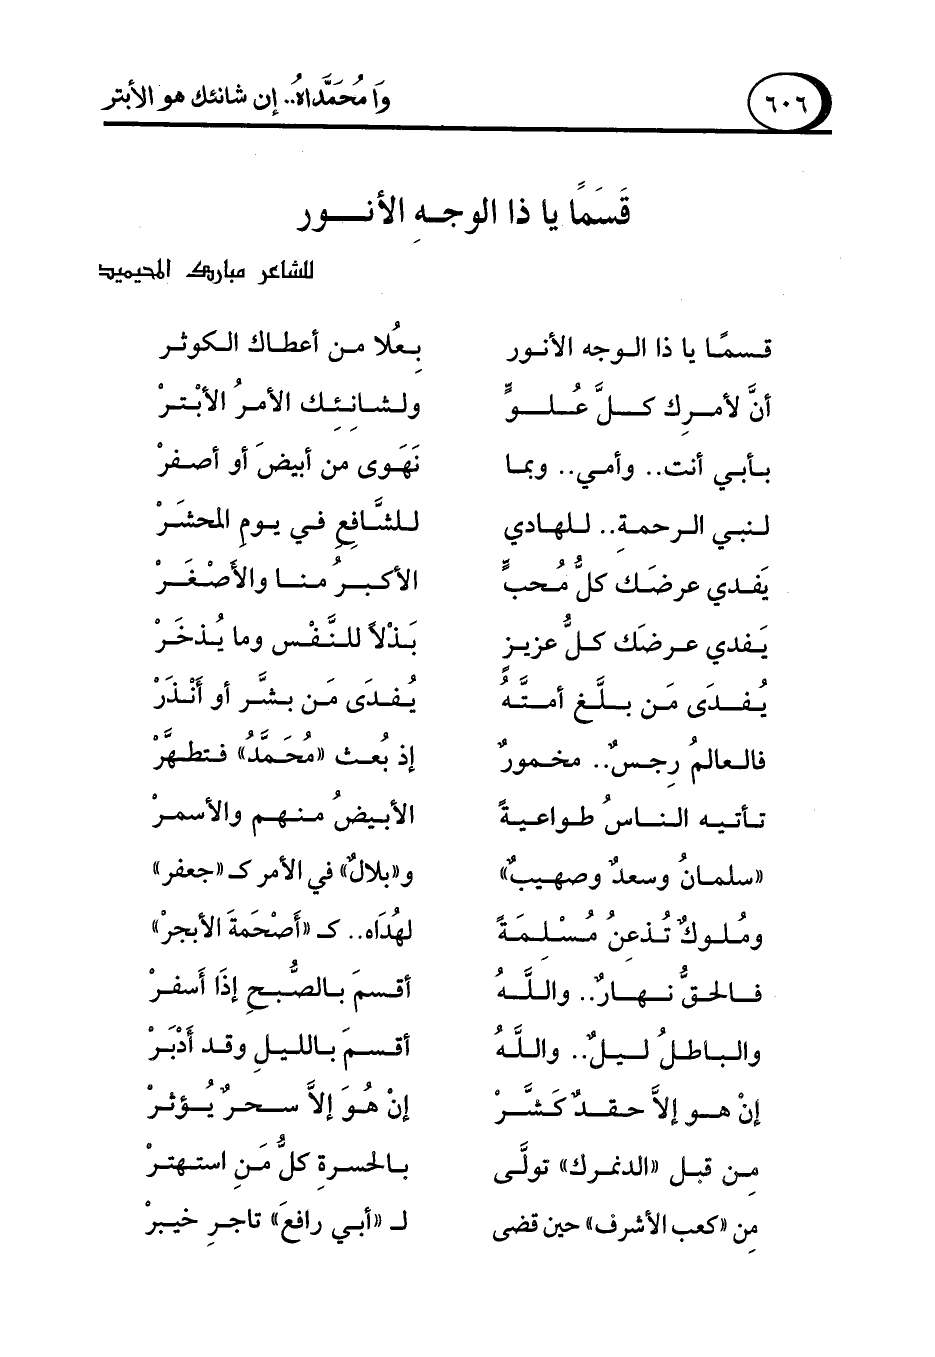 ٦٠٦ وَا مُحَمَّدَاهُ.. إن شانئك هو الأبتر
قَسَمًا يا ذا الوجهِ الأنـــور
للشاعر مبارك المحيميد
قسمًا يا ذا الوجه الأنور بعُلا من أعطاك الكوثر
أنَّ لأمرِك كلَّ عُلوٍّ ولشانِئِك الأمرُ الأبْترْ
بأبي أنت.. وأمي.. وبما نَهَوى من أبيضَ أو أصفرْ
لنبي الرحمةِ.. للهادي للشَّافعِ في يومِ المحشَرْ
يَفدي عرضَك كلُّ مُحبٍّ الأكبرُ منا والأَصْغَرْ
يَفدي عرضَك كلُّ عزيزٍ بَذْلاً للنَّفْسِ وما يُذخَرْ
يُفدَى مَن بلَّغ أمتَّهُ يُفدَى مَن بشَّر أو أنْذَرْ
فالعالمُ رِجسٌ.. مخمورٌ إذ بُعث «مُحَمَّدُ» فتطهَّرْ
تأتيه الناسُ طواعيةً الأبيضُ منهم والأسمرْ
«سلمانُ وسعدٌ وصهيبٌ» و«بلالٌ» في الأمر كـ «جعفر»
ومُلوكٌ تُذعنُ مُسْلِمَةً لهُدَاه.. كـ «أَصْحَمَةَ الأبجرْ»
فالحقُّ نهارٌ.. واللَّهُ أقسمَ بالصُّبحِ إذَا أَسفرْ
والباطلُ ليلٌ.. واللَّهُ أقسمَ بالليلِ وقد أَدْبَرْ
إنْ هو إلاَّ حقدٌ كَشَّرْ إنْ هُوَ إلاَّ سحرٌ يُؤثرْ
مِن قبل «الدغرك» تولَّى بالحسرةِ كلُّ مَنِ استهترْ
مِن «كعب الأشرف» حين قضى لـ «أبي رافعَ» تاجرِ خيبرْ